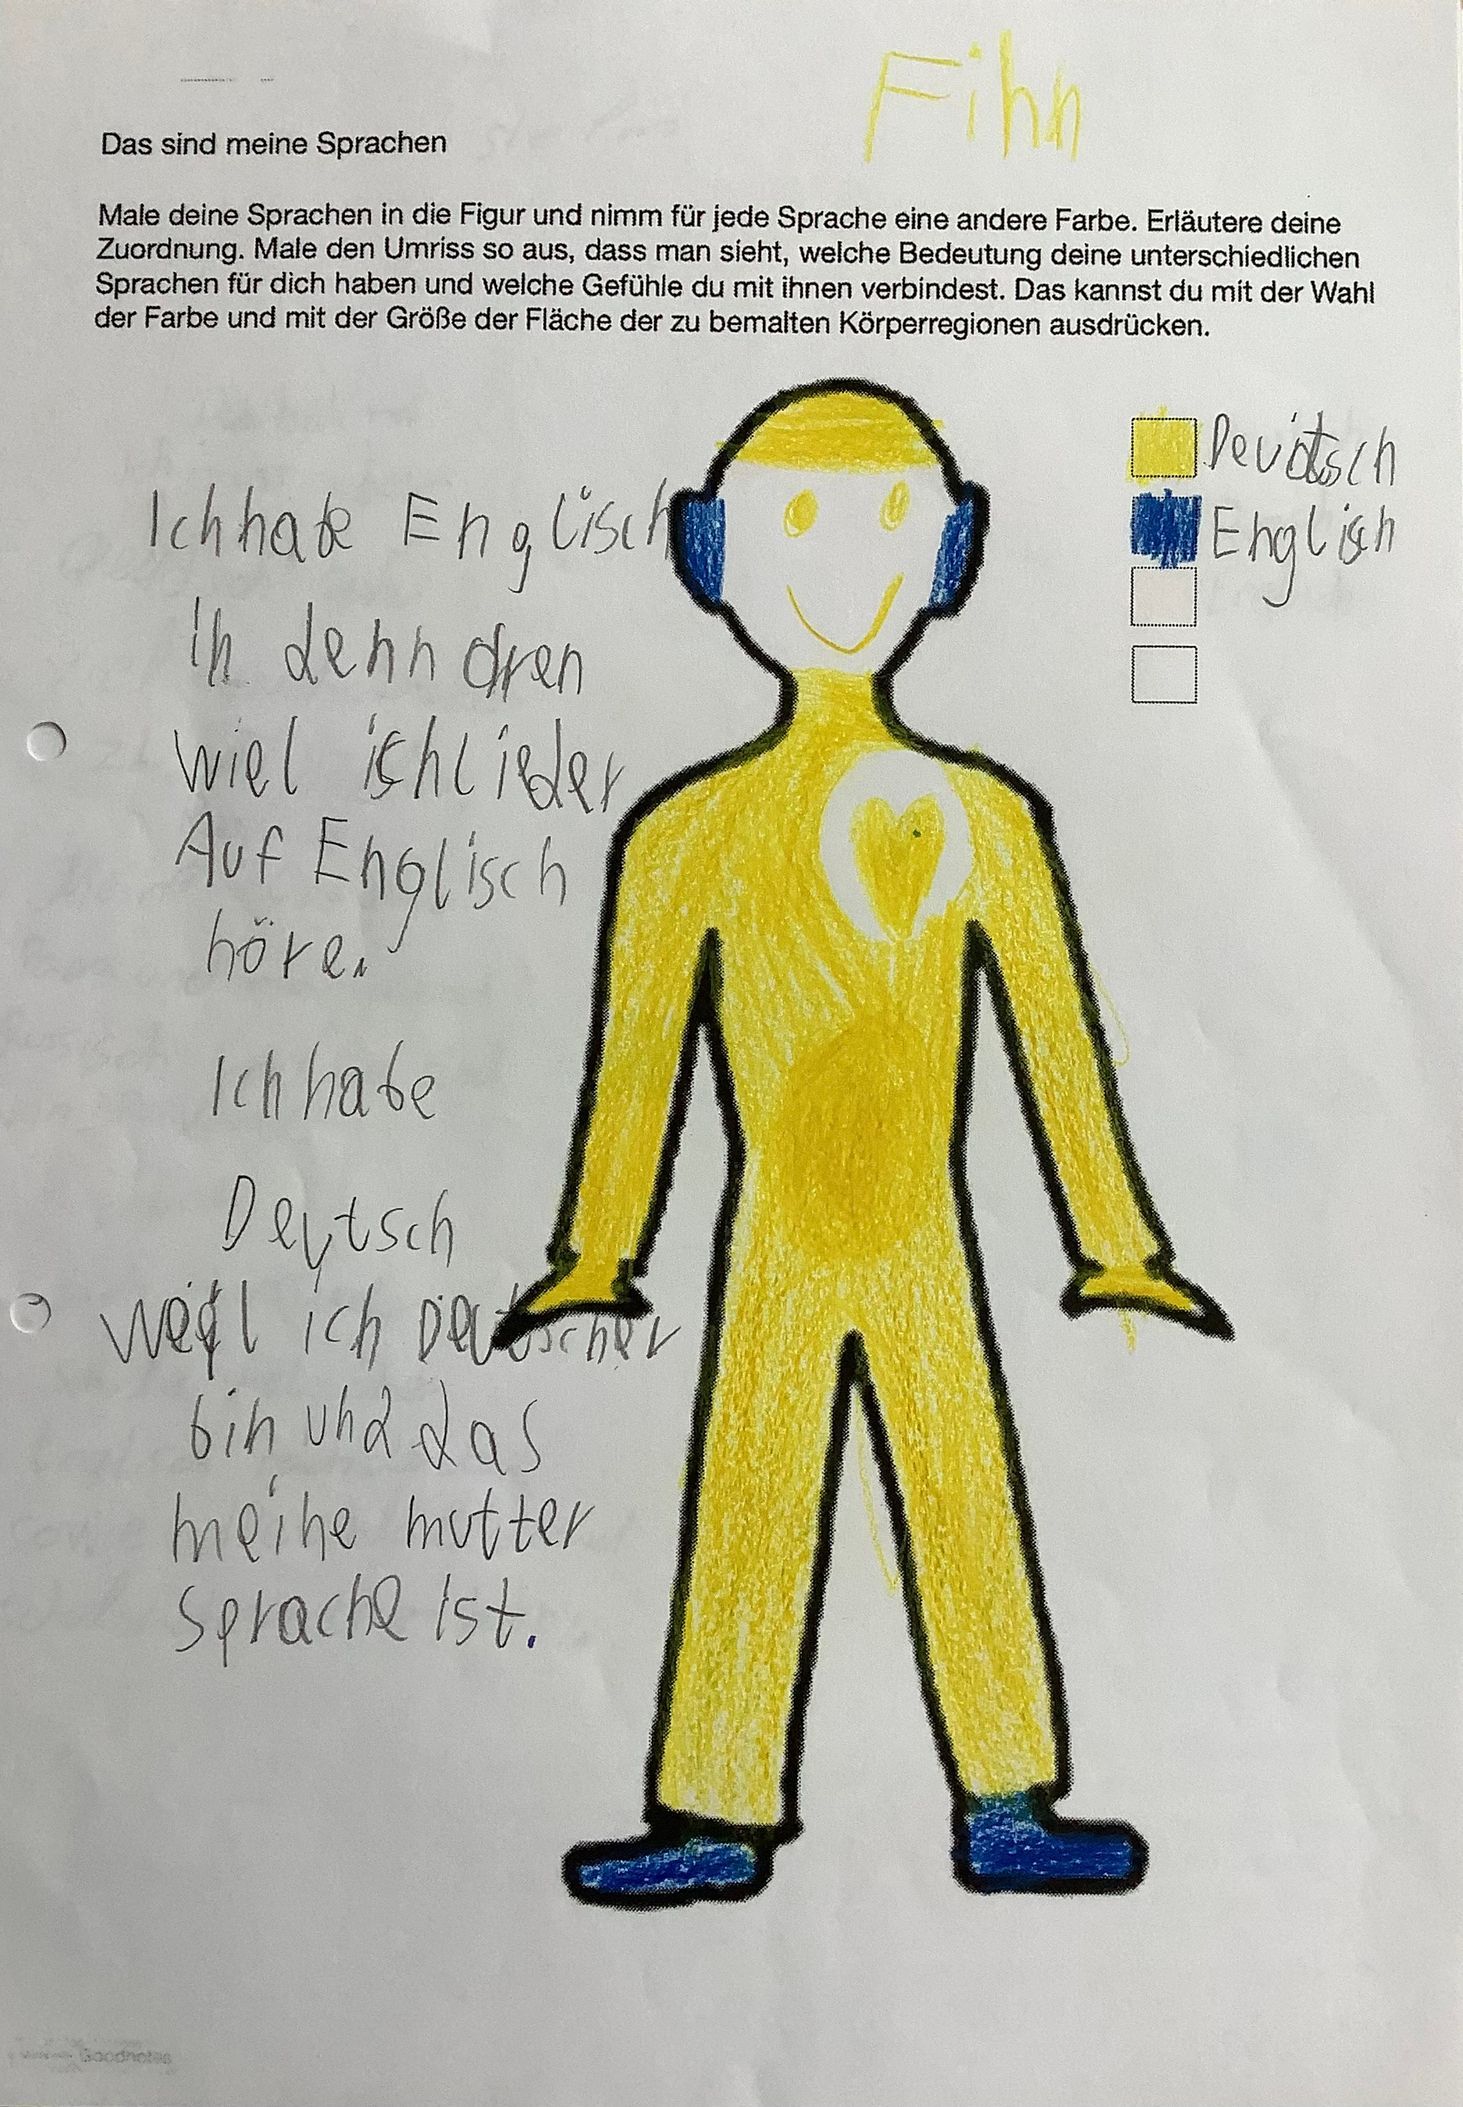 Finn
Das sind meine Sprachen
Male deine Sprachen in die Figur und nimm für jede Sprache eine andere Farbe. Erläutere deine
Zuordnung. Male den Umriss so aus, dass man sieht, welche Bedeutung deine unterschiedlichen
Sprachen für dich haben und welche Gefühle du mit ihnen verbindest. Das kannst du mit der Wahl
der Farbe und mit der Größe der Fläche der zu bemalten Körperregionen ausdrücken.
Deutsch
Englisch
Ich habe Englisch
in denn oren
wiel ich lieder
Auf Englisch
höre.
Ich habe
Deutsch
weil ich Deutscher
bin und das
meine mutter
sprache ist.
Goodnotes